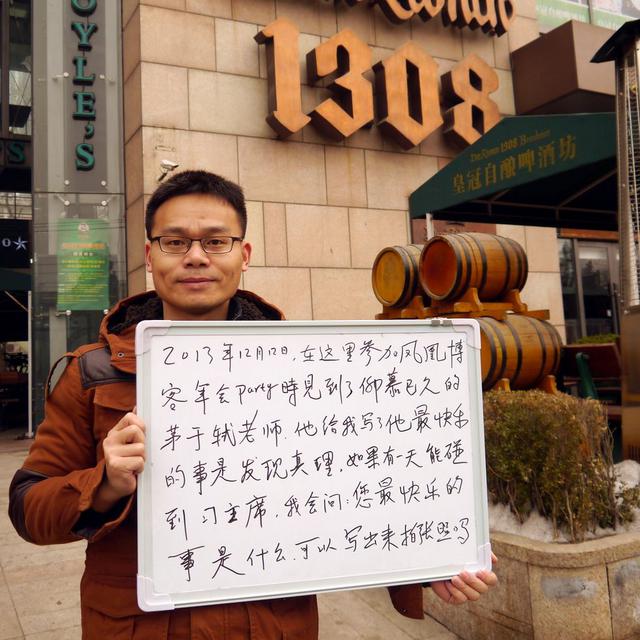 OYLE'S
1308
DieKrone 1308 Brauhaus
皇冠自酿啤酒坊
2013年12月12日,在这里参加凤凰博
客年会Party時見到了仰慕已久的
茅于轼老师.他给我写了他最快乐
的事是发现真理,如果有一天能碰
到习主席,我会问:您最快乐的
事是什么,可以写出来拍张照吗